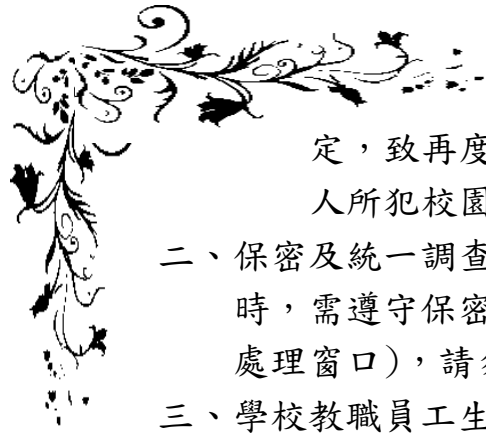 定，致再度
人所犯校園
二、保密及統一調查
時，需遵守保密
處理窗口)，請
三、學校教職員工生